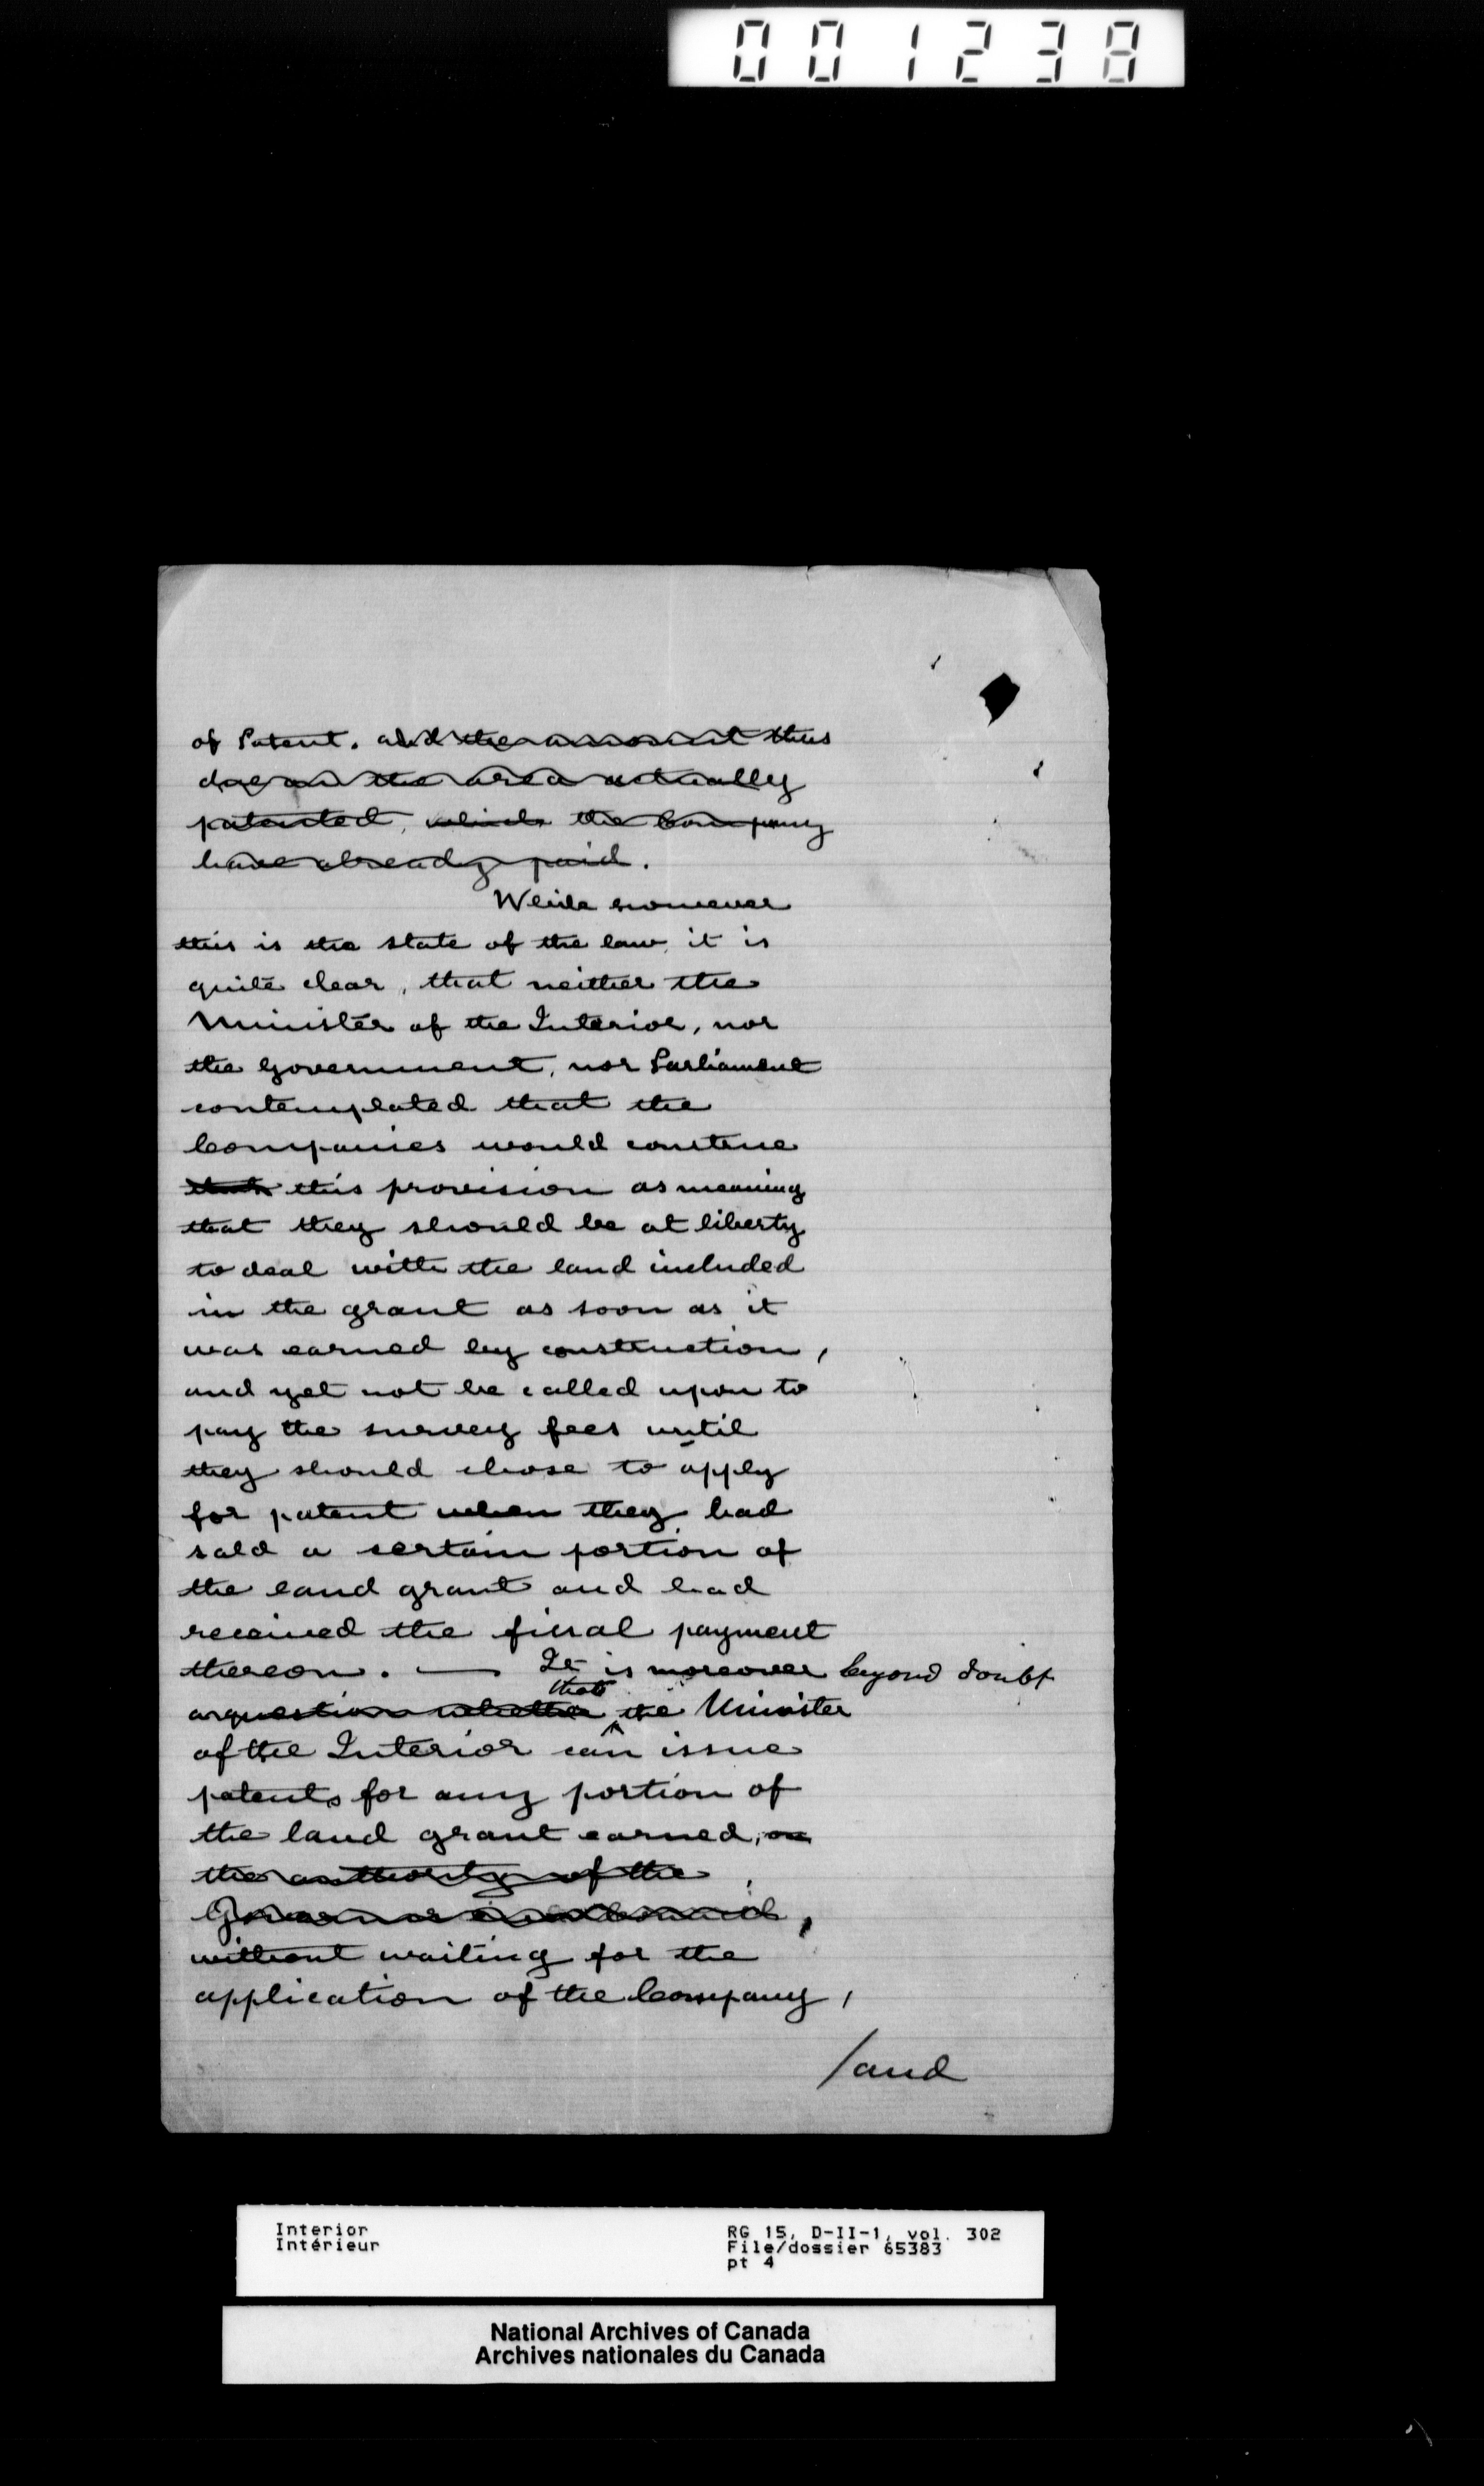 001238
of Patent. and the amount thus
due on the area actually
patented, which the Company
have already paid.
While however
this is the state of the law, it is
quite clear, that neither the
Minister of the Interior, nor
the Government, nor Parliament
contemplated that the
Companies would construe
this provision as meaning
that they should be at liberty
to deal with the land included
in the grant as soon as it
was earned by construction,
and yet not be called upon to
pay the survey fees until
they should chose to apply
for patent when they had
sold a certain portion of
the land grant and had
received the final payment
thereon. — It is moreover beyond doubt
that
a question whether ^ the Minister
of the Interior can issue
patents for any portion of
the land grant earned, on
the authority of the
Governor in Council,
without waiting for the
application of the Company,
/and
Interior
Intérieur
RG 15, D-II-1, vol. 302
File/dossier 65383
pt 4
National Archives of Canada
Archives nationales du Canada